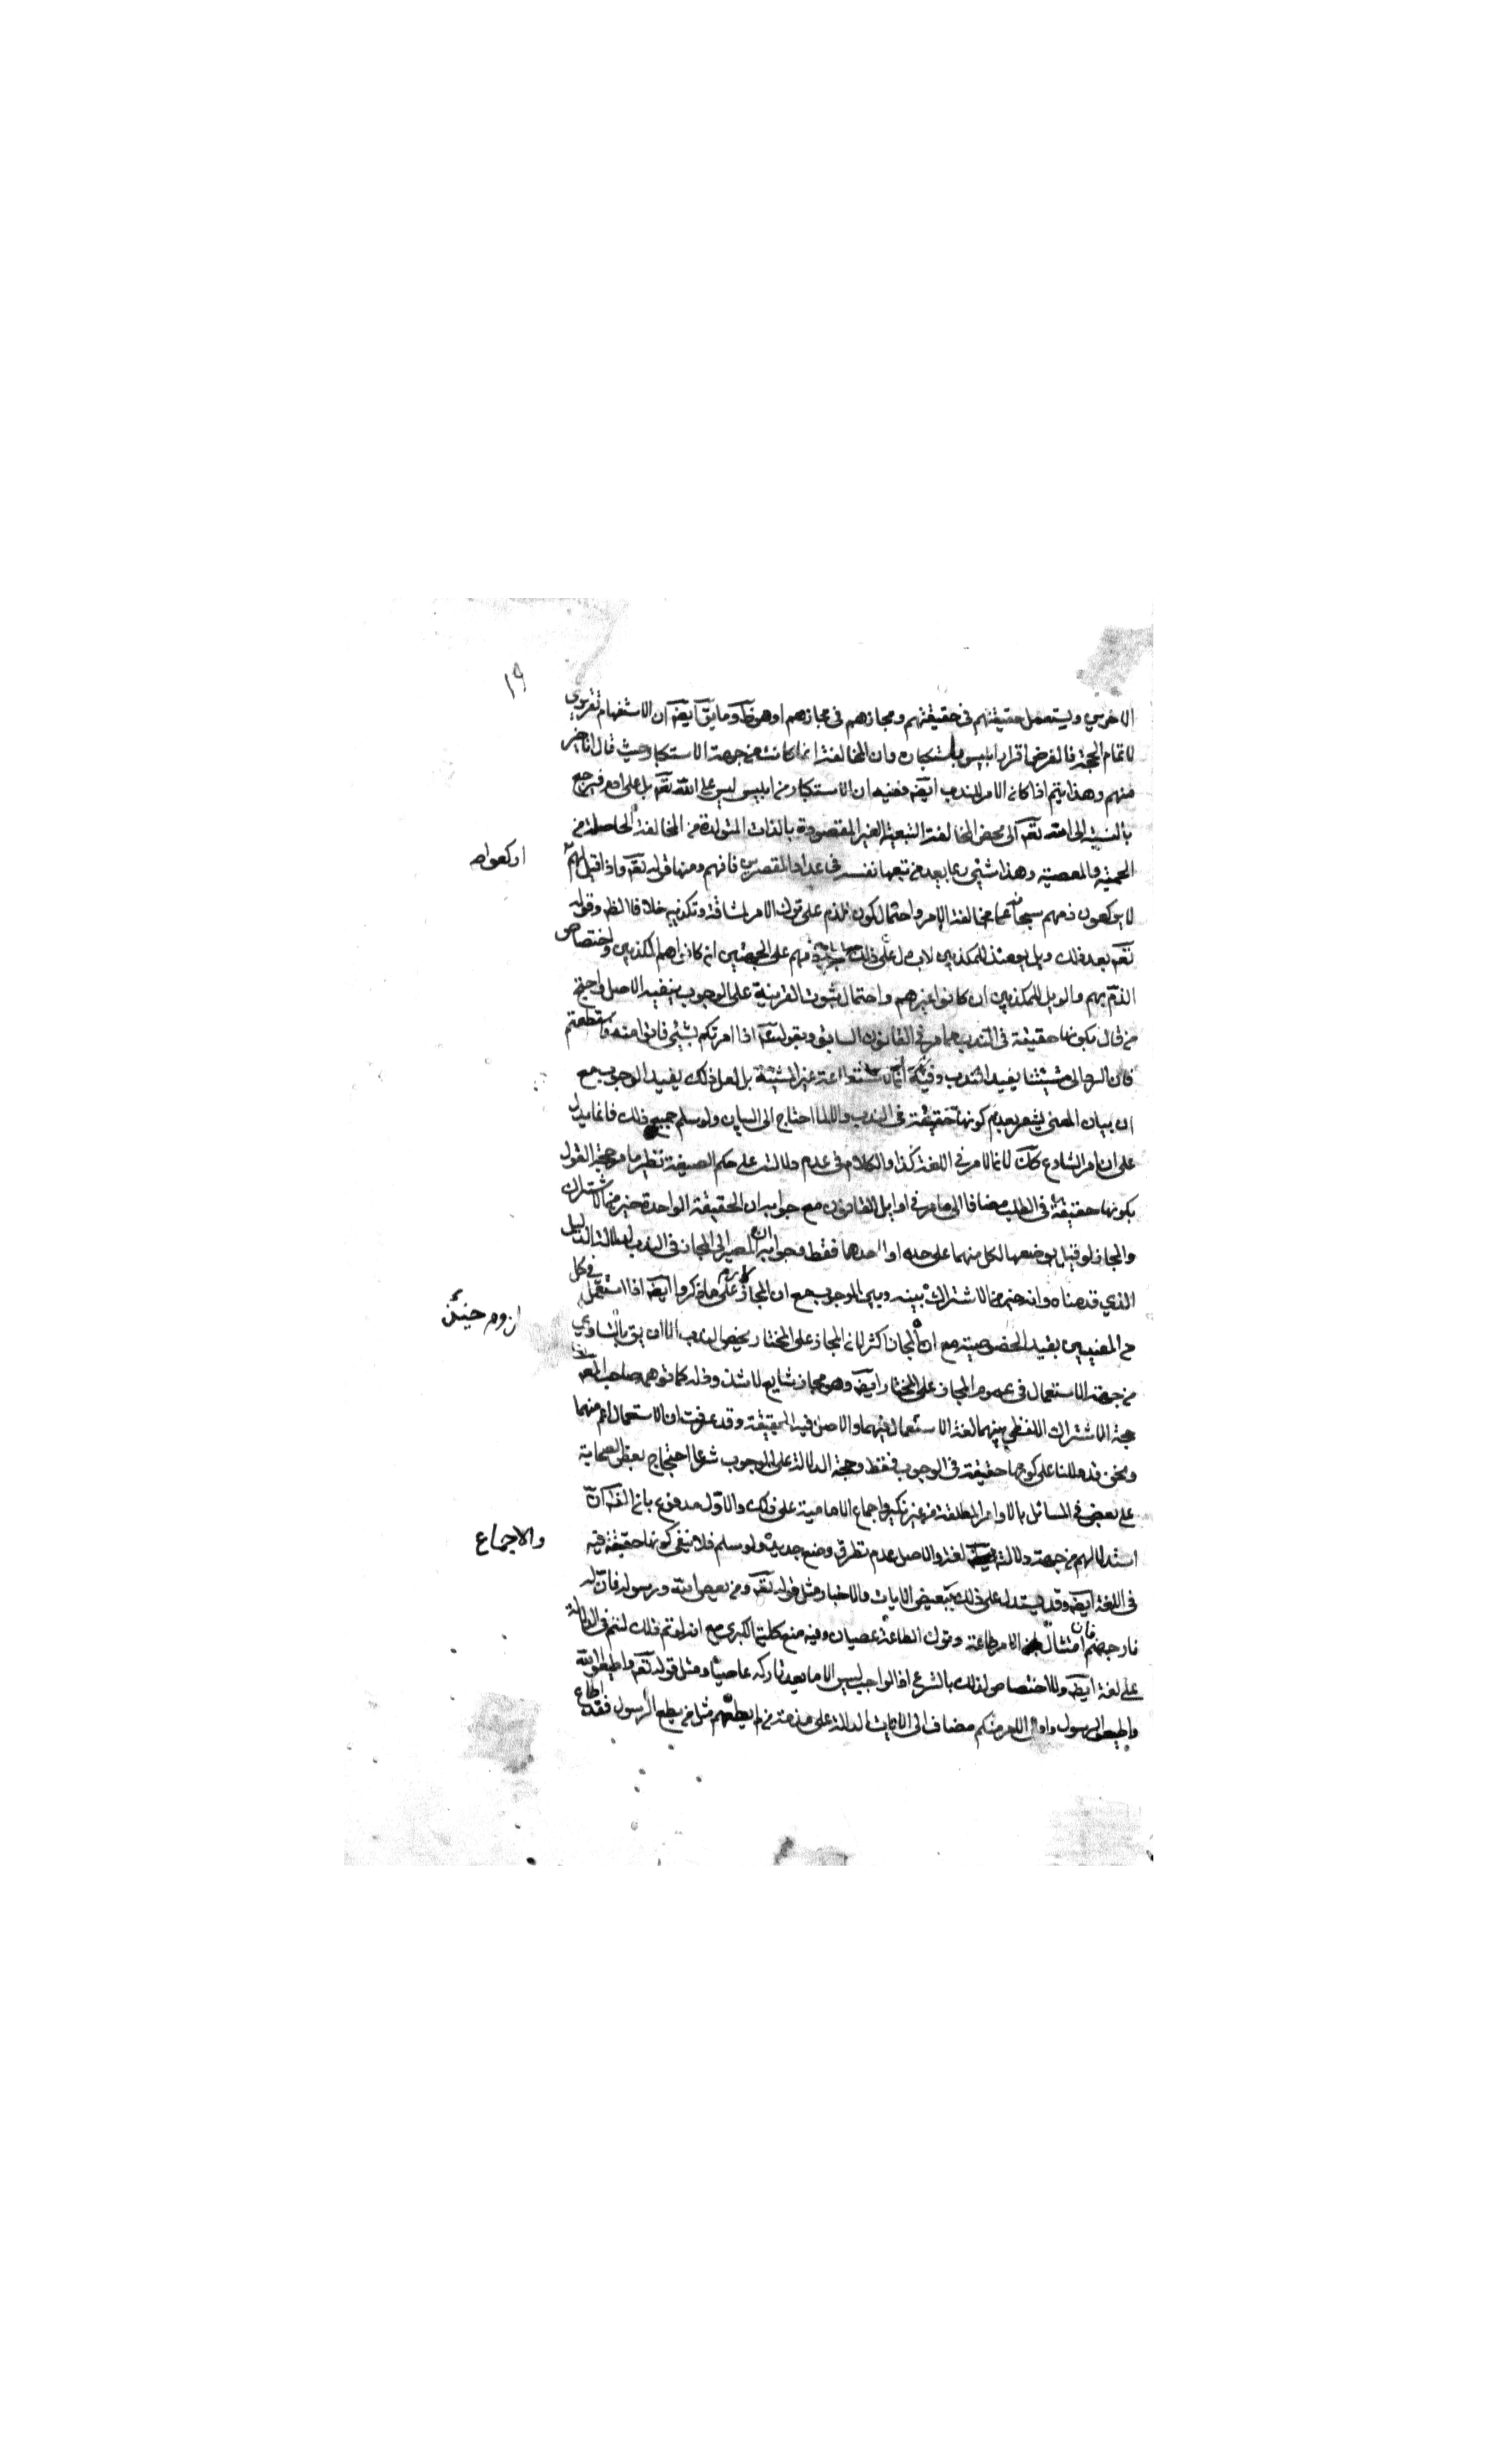 ١٩
الاخرين ويستعمل حقيقتهم في حقيقتهم ومجازهم في مجازهم او هو ظ وما يق ايضَ ان الاستفهام تقريري
لاتمام الحجة فالغرض اقرار ابليس باستكباره وان المخالفة انما كانت من جهة الاستكبار حيث قال انا خير
منهم وهذا يتم اذا كان الامر للندب ايضَ ففيه ان الاستكبار من ابليس ليس على الله تعَ بل على ادم فيرجع
بالنسبة الى امته تعَ الى محض المخالفة التبعية الغير المقصودة بالذات المتولدة من المخالفة الحاصلة من
الحمية والمعصية وهذا شيء ربما يعد من تبعها نفسه في عداد المقصرين فافهم ومنها قوله تعَ واذا قيل لهم
اركعوا
لا يركعون ذمهم سبحانه على مخالفة الامر واحتمال كون الذم على ترك الامر لمشاقة وتكذيبه خلاف الظ وقوله
تعَ بعد ذلك ويل يومئذ للمكذبين لا يدل على ذلك ذمهم على الجهتين ان كانوا هم المكذبين واختصاص
الذم بهم والويل للمكذبين ان كانوا غيرهم واحتمال ثبوت القرينة على الوجوب ينفيه الاصل واحتج
من قال بكونها حقيقة في الندب بما مر في القانون السابق وبقوله عَ اذا امرتكم بشيء فاتوا منه ما استطعتم
فان الرد الى مشيتنا يفيد الندب وفيه ان الاستطاعة غير المشيئة بل لعل ذلك يفيد الوجوب مع
ان بيان المعنى يشعر بعدم كونها حقيقة في الندب والا لما احتاج الى البيان ولو سلم جميع ذلك فانما يدل
على ان امر الشارع كك لا ان الامر في اللغة كذا والكلام في عدم دلالته على حكم الصيغة نظير ما مر حجة القول
بكونها حقيقة في الطلب مضافا الى ما مر في اوايل القانون مع جوابه ان الحقيقة الواحدة خير من الاشتراك
والمجاز لو قيل بوضعها لكل منهما على حده او لاحدهما فقط وجوابه ان المصير الى المجاز في الندب لدلالة الدليل
الذي قدمناه وانه خير من الاشتراك بينه وبين الوجوب مع ان المجاز لازم على ما ذكروا ايضَ اذا استعمل في كل
من المعنيين بقيد الخصوصية مع ان المجاز اكثر لان المجاز على المختار يخص الندب الا ان يق بالتساوي
لزوم حينئذ
من جهة الاستعمال في عموم المجاز على المختار ايضَ وهو مجاز شايع لا شذوذ له كما توهمه صاحب المعالم
حجة الاشتراك اللفظي بينهما لغة الاستعمال فيهما والاصل فيه الحقيقة وقد عرفت ان الاستعمال اعم منهما
ونحن قد دللنا على كونها حقيقة في الوجوب فقط وحجة الدلالة على الوجوب شرعا احتجاج بعض الصحابة
على بعض في المسائل بالاوامر المطلقة من غير نكير واجماع الامامية على ذلك والاول مدفوع بان الظ ان
استدلالهم من جهة دلالته لغة والاصل عدم تطرق وضع جديد ولو سلم فلا ينفي كونها حقيقة فيه
والاجماع
في اللغة ايضَ وقد يستدل على ذلك ببعض الايات والاخبار مثل قوله تعَ ومن يعص الله ورسوله فان له
نار جهنم فان امتثال الامر طاعة وترك الطاعة عصيان وفيه منع كلية الكبرى مع انه لو تم ذلك لتم في الدلالة
على لغة ايضَ ولا اختصاص لذلك بالشرع اذ الواجب ليس الا ما يعد تاركه عاصيا ومثل قوله تعَ واطيعوا الله
واطيعوا الرسول واولي الامر منكم مضافا الى الايات الدالة على مذمة من لم يطعهم مثل من يطع الرسول فقد اطاع